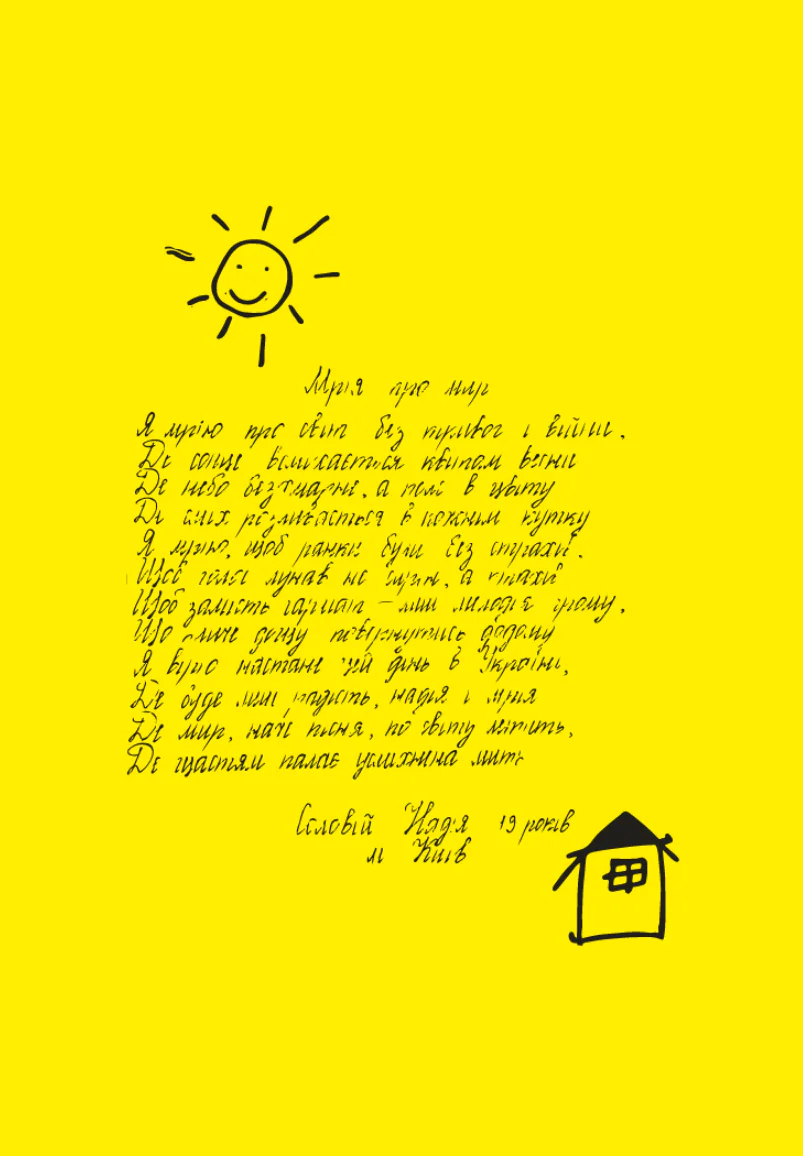 Мрія про мир
Я мрію про світ без тривог і війни,
Де сонце всміхається квітам весни
Де небо безхмарне, а поле в цвіту
Де сміх розливається в кожнім кутку
Я мрію, щоб ранки були без страхів,
Щоб голос лунав не сирен, а птахів
Щоб замість гармат – лиш мелодія грому,
Що кличе дощу повернутись додому
Я вірю настане цей день в Україні,
Де буде лиш радість, надія і мрія
Де мир, наче пісня, по світу летить,
Де щастям палає усмішнена мить
Соловій Надія 19 років
м Київ